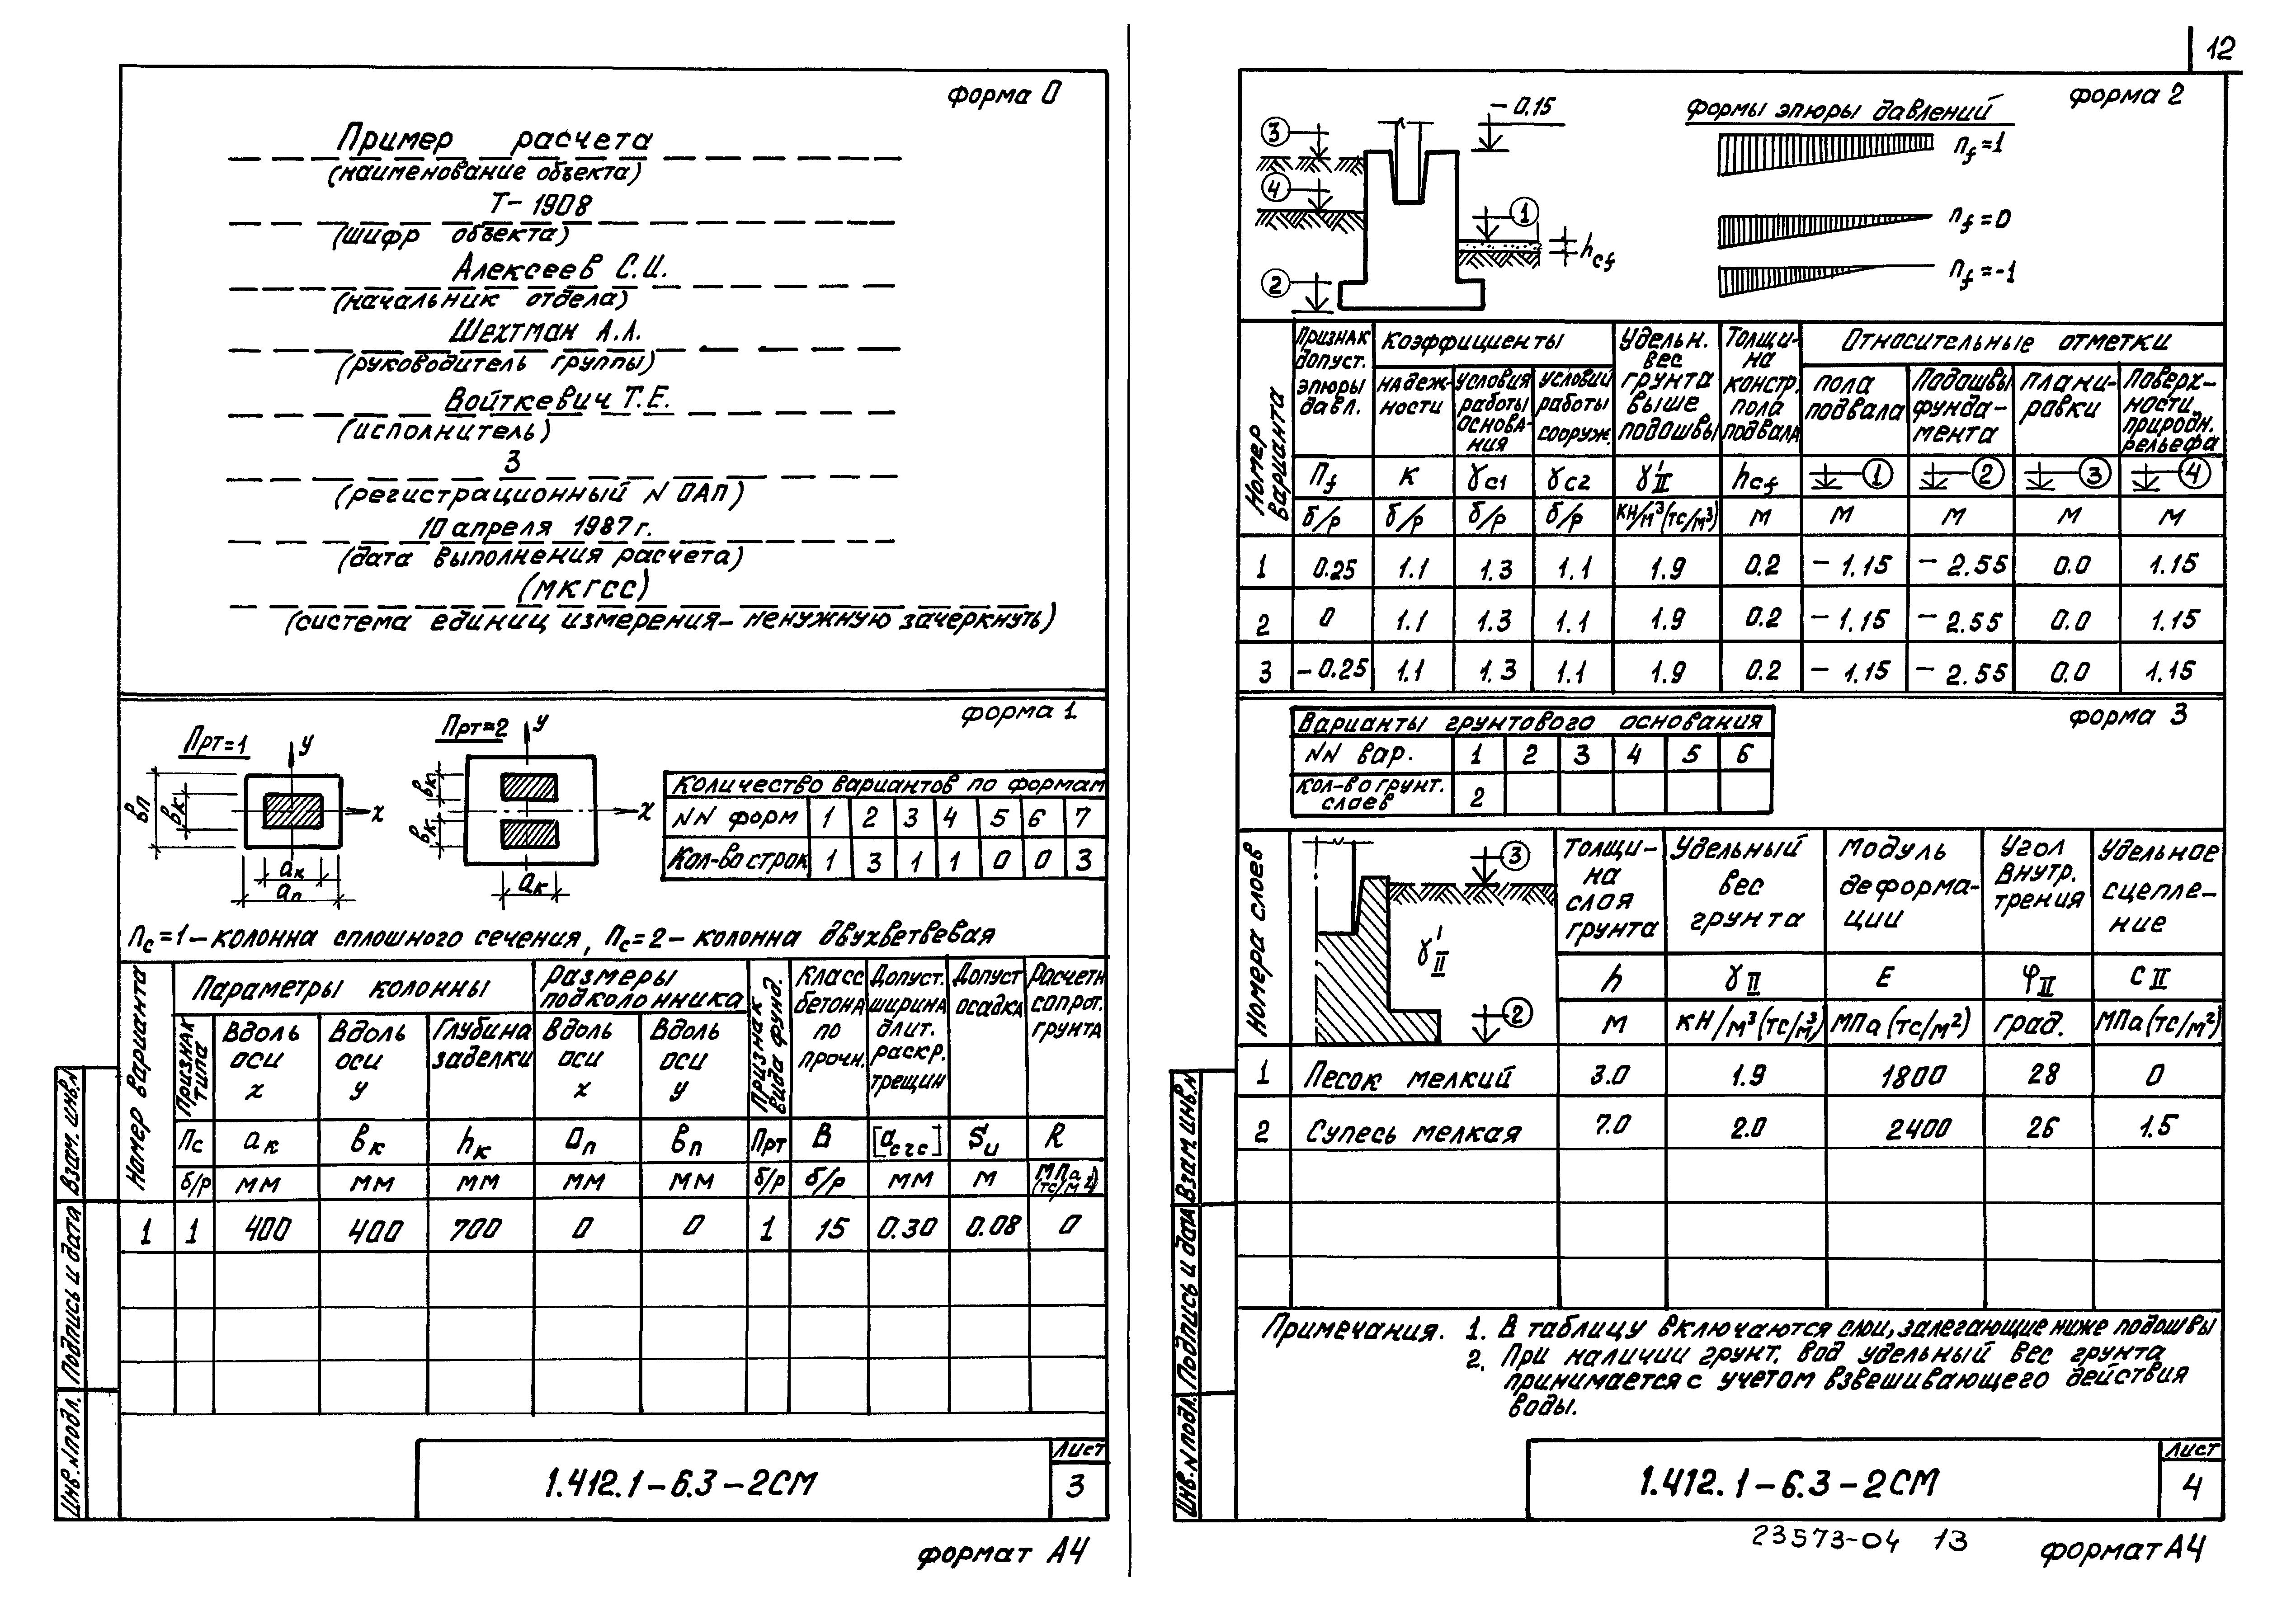 форма 0
Пример расчета
(наименование объекта)
Т-1908
(шифр объекта)
Алексеев С.И.
(начальник отдела)
Шехтман А.Л.
(руководитель группы)
Войткевич Т.Е.
(исполнитель)
3
(регистрационный N ОАП)
10 апреля 1987 г.
(дата выполнения расчета)
(МКГСС)
(система единиц измерения- ненужную зачеркнуть)
форма 1
Прт=1
у
х
вп
вк
ак
ап
Прт=2
у
х
вк
вк
ак
Количество вариантов по формам
NN форм 1 2 3 4 5 6 7
Кол-во строк 1 3 1 1 0 0 3
Пс=1-колонна сплошного сечения, Пс=2-колонна двухветвевая
Номер варианта
Параметры колонны
Размеры подколонника
Признак вида фунд.
Класс бетона по прочн.
Допуст. ширина длит. раскр. трещин
Допуст осадка
Расчетн сопрот. грунта
Признак типа
Вдоль оси х
Вдоль оси у
Глубина заделки
Вдоль оси х
Вдоль оси у
Пс ак вк hк ап вп Прт В [aсrс] Su R
б/р мм мм мм мм мм б/р б/р мм м МПа (тс/м2)
1 1 400 400 700 0 0 1 15 0.30 0.08 0
Взам. инв.N
Подпись и дата
Инв.Nподл.
1.412.1-6.3-2СМ
Лист
3
формат А4
12
форма 2
-0.15
3
4
1
hcf
2
формы эпюры давлений
пf=1
пf=0
пf=-1
Номер варианта
Признак допуст. эпюры давл.
Коэффициенты
Удельн. вес грунта выше подошвы
Толщина констр. пола подвала
Относительные отметки
надежности
условия работы основания
условий работы сооруж.
пола подвала
Подошвы фундамента
планировки
Поверхности природн. рельефа
Пf к γc1 γc2 γ'II hcf 1 2 3 4
б/р б/р б/р б/р КН/м³(тс/м³) м м м м м
1 0.25 1.1 1.3 1.1 1.9 0.2 -1.15 -2.55 0.0 1.15
2 0 1.1 1.3 1.1 1.9 0.2 -1.15 -2.55 0.0 1.15
3 -0.25 1.1 1.3 1.1 1.9 0.2 -1.15 -2.55 0.0 1.15
форма 3
Варианты грунтового основания
NN вар. 1 2 3 4 5 6
кол-во грунт. слаев 2
Номера слоев
3
γ'II
2
Толщина слоя грунта
Удельный вес грунта
Модуль деформации
Угол внутр. трения
Удельное сцепление
h γII Е φII СII
м кН/м³(тс/м³) МПа(тс/м²) град. МПа(тс/м²)
1 Песок мелкий 3.0 1.9 1800 28 0
2 Супесь мелкая 7.0 2.0 2400 26 1.5
Примечания. 1. В таблицу включаются слои, залегающие ниже подошвы
2. При наличии грунт. вод удельный вес грунта
принимается с учетом взвешивающего действия
воды.
Взам. инв.N
Подпись и дата
Инв.Nподл.
1.412.1-6.3-2СМ
Лист
4
23573-04 13
формат А4